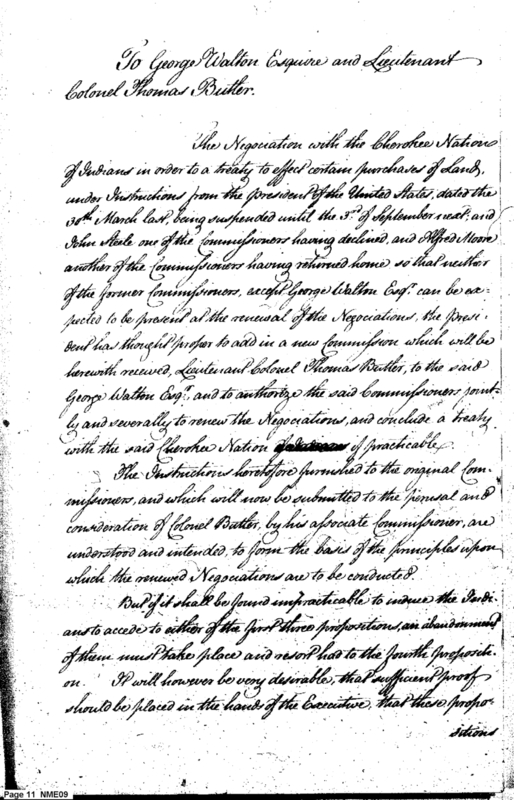 To George Walton Esquire and Lieutenant
Colonel Thomas Butler.
The Negociation with the Cherokee Nation
of Indians in order to a treaty to effect certain purchases of Land,
under Instructions from the President of the United States, dated the
30th March last, being suspended until the 3d of September next, and
John Steele one of the Commissioners having declined, and Alfred Moore
another of the Commissioners having returned home so that neither
of the former Commissioners, except George Walton Esqr. can be ex-
pected to be present at the renewal of the Negociations, the Presi-
dent has thought proper to add in a new Commission which will be
herewith received, Lieutenant Colonel Thomas Butler, to the said
George Walton Esqr. and to authorize the said Commissioners joint-
ly and severally to renew the Negociations, and conclude a treaty
with the said Cherokee Nation if practicable.
The Instructions heretofore furnished to the original Com-
missioners, and which will now be submitted to the perusal and
consideration of Colonel Butler, by his associate Commissioner, are
understood and intended, to form the basis of the principles upon
which the renewed Negociations are to be conducted.
But if it shall be found impracticable to induce the Indi-
ans to accede to either of the first three propositions, an abandonment
of them must take place and resort had to the fourth propositi-
on. It will however be very desirable, that sufficient proof
should be placed in the hands of the Executive, that these propo-
sitions
Page 11 NME09